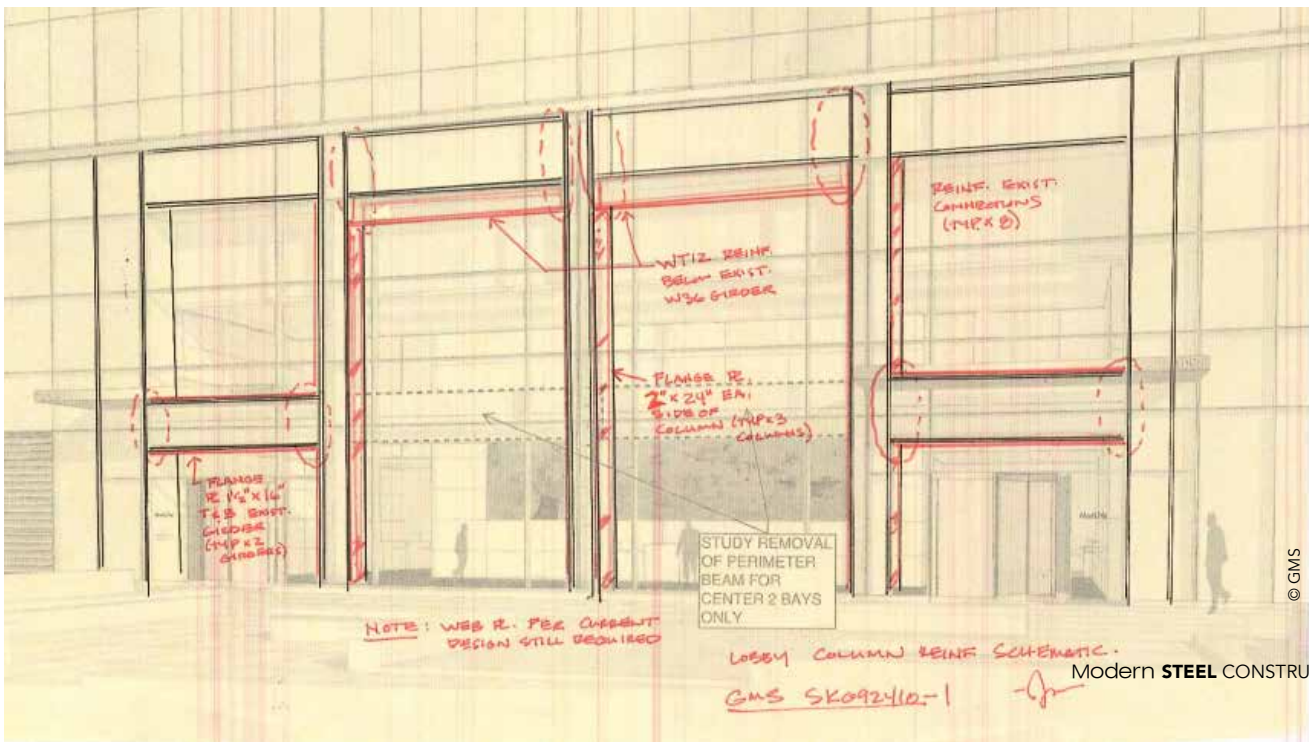 REINF. EXIST.
CONNECTIONS
(TYP. x 8)
WT12 REINF.
BELOW EXIST.
W36 GIRDER
FLANGE PL
2" x 24" EA.
SIDE OF
COLUMN (TYP x 3
COLUMNS)
FLANGE
PL 1½" x 16"
T & B EXIST.
GIRDER
(TYP x 2
GIRDERS)
STUDY REMOVAL
OF PERIMETER
BEAM FOR
CENTER 2 BAYS
ONLY
NOTE: WEB PL. PER CURRENT
DESIGN STILL REQUIRED
LOBBY COLUMN REINF SCHEMATIC.
GMS SK092410-1
Modern STEEL CONSTRU
© GMS